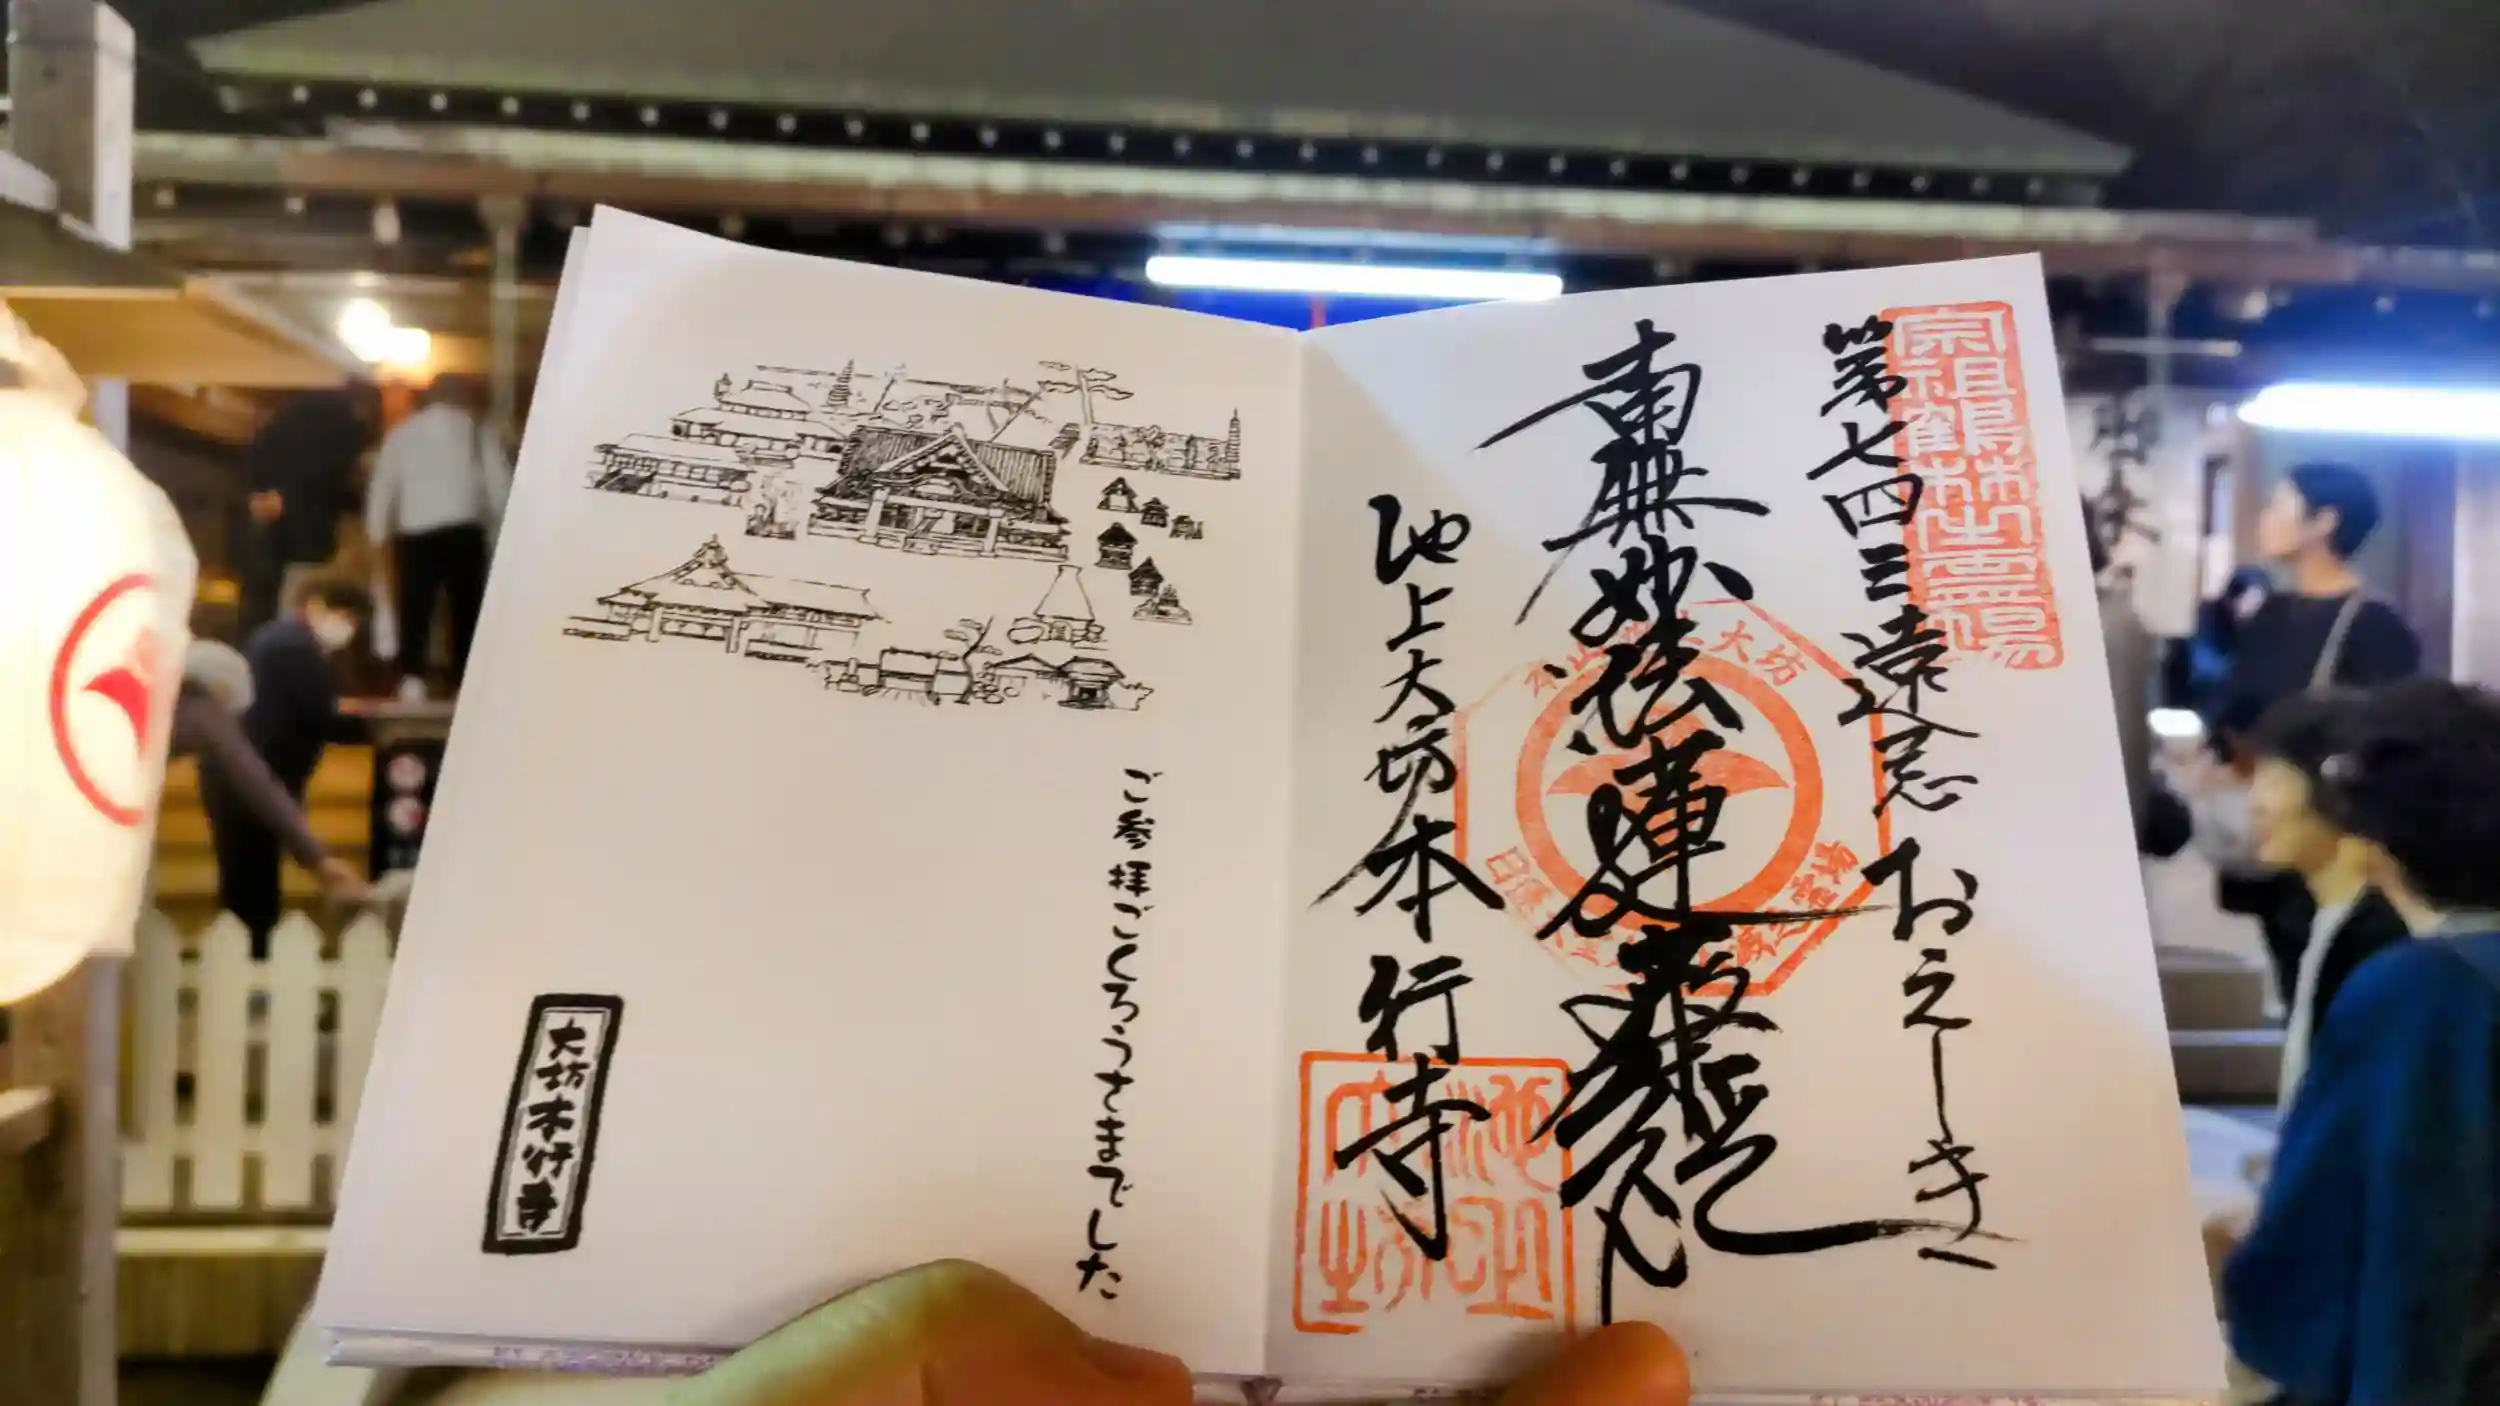 宗祖鶴林之霊場
第七四三遠忌 おえしき
南無妙法蓮華経
池上大坊本行寺
大坊
池上
大坊
ご参拝ごくろうさまでした
大坊本行寺